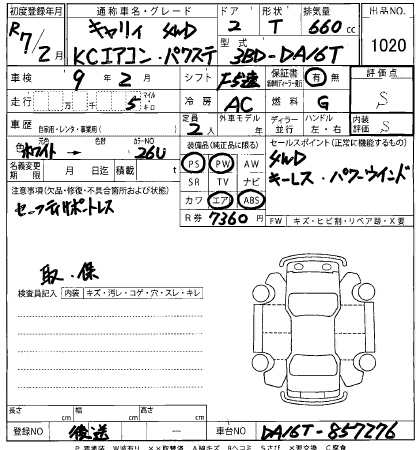 初度登録年月 通称車名・グレード ドア 形状 排気量 出品NO.
R7/2月 キャリイ 4WD 2 T 660cc 1020
KCエアコン・パワステ 型式 3BD-DA16T
車検 9年2月 シフト F5速 保証書 有 無 評価点
走行 万 千 5 マイル キロ 冷房 AC 燃料 G S
車歴 自家用・レンタ・事業用( ) 定員 2人 外車モデル 年 ディーラー 並行 ハンドル 左・右 内装評価 S
色 ホワイト → 色替 カラーNO 26U 装備品(純正品に限る) セールスポイント(正常に機能するもの)
名義変更期限 月 日迄 積載 t PS PW AW 4WD
注意事項(欠品・修復・不具合箇所および状態) SR TV ナビ キーレス・パワーウインド
セーフティサポートレス カワ エアB ABS
R券 7360円 FW キズ・ヒビ割・リペア跡・X要
取・保
検査員記入 内装 キズ・汚レ・コゲ・穴・スレ・キレ
長さ cm 幅 cm 高さ cm
登録NO 後送 — 車台NO DA16T-857276